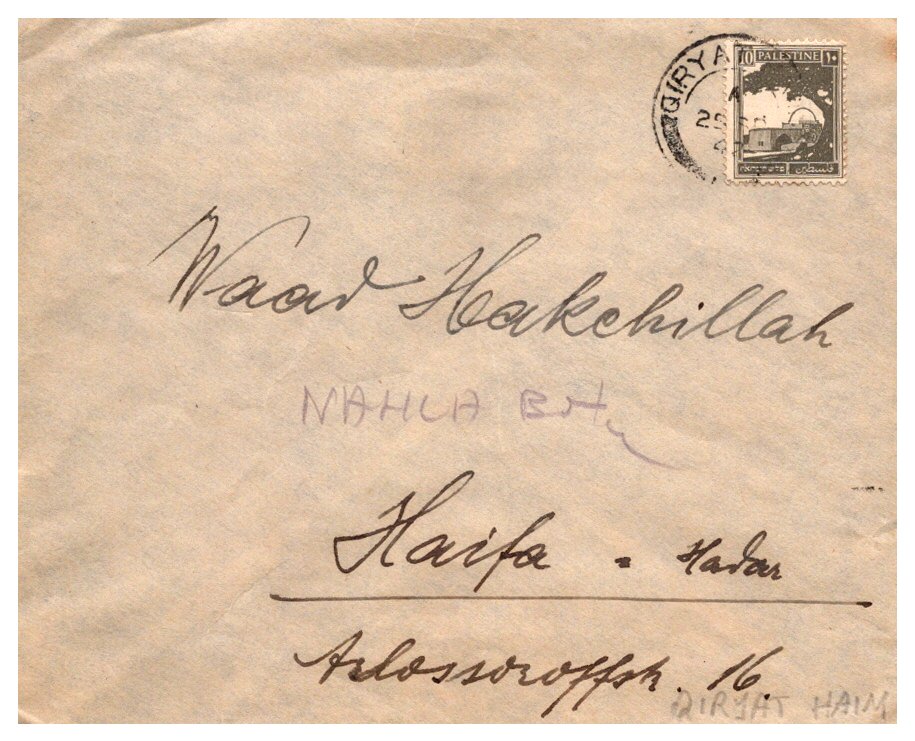 QIRYA
10 PALESTINE ١٠
A
فلسطين
Waad Hakehillah
NAHLA
Haifa - Hadar
Arlossoroffstr. 16.
QIRYAT HAIM